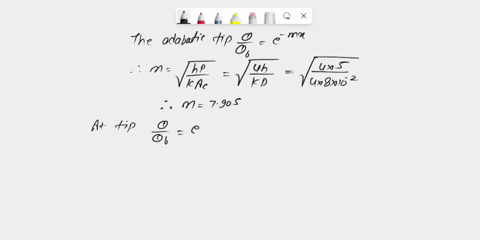 The adabatic tip θ/θb = e^-mx
∴ m = √(hP/KAc) = √(4h/KD) = √(4×5/4×8×10^-2)
∴ m = 7.905
At tip θ/θb = e